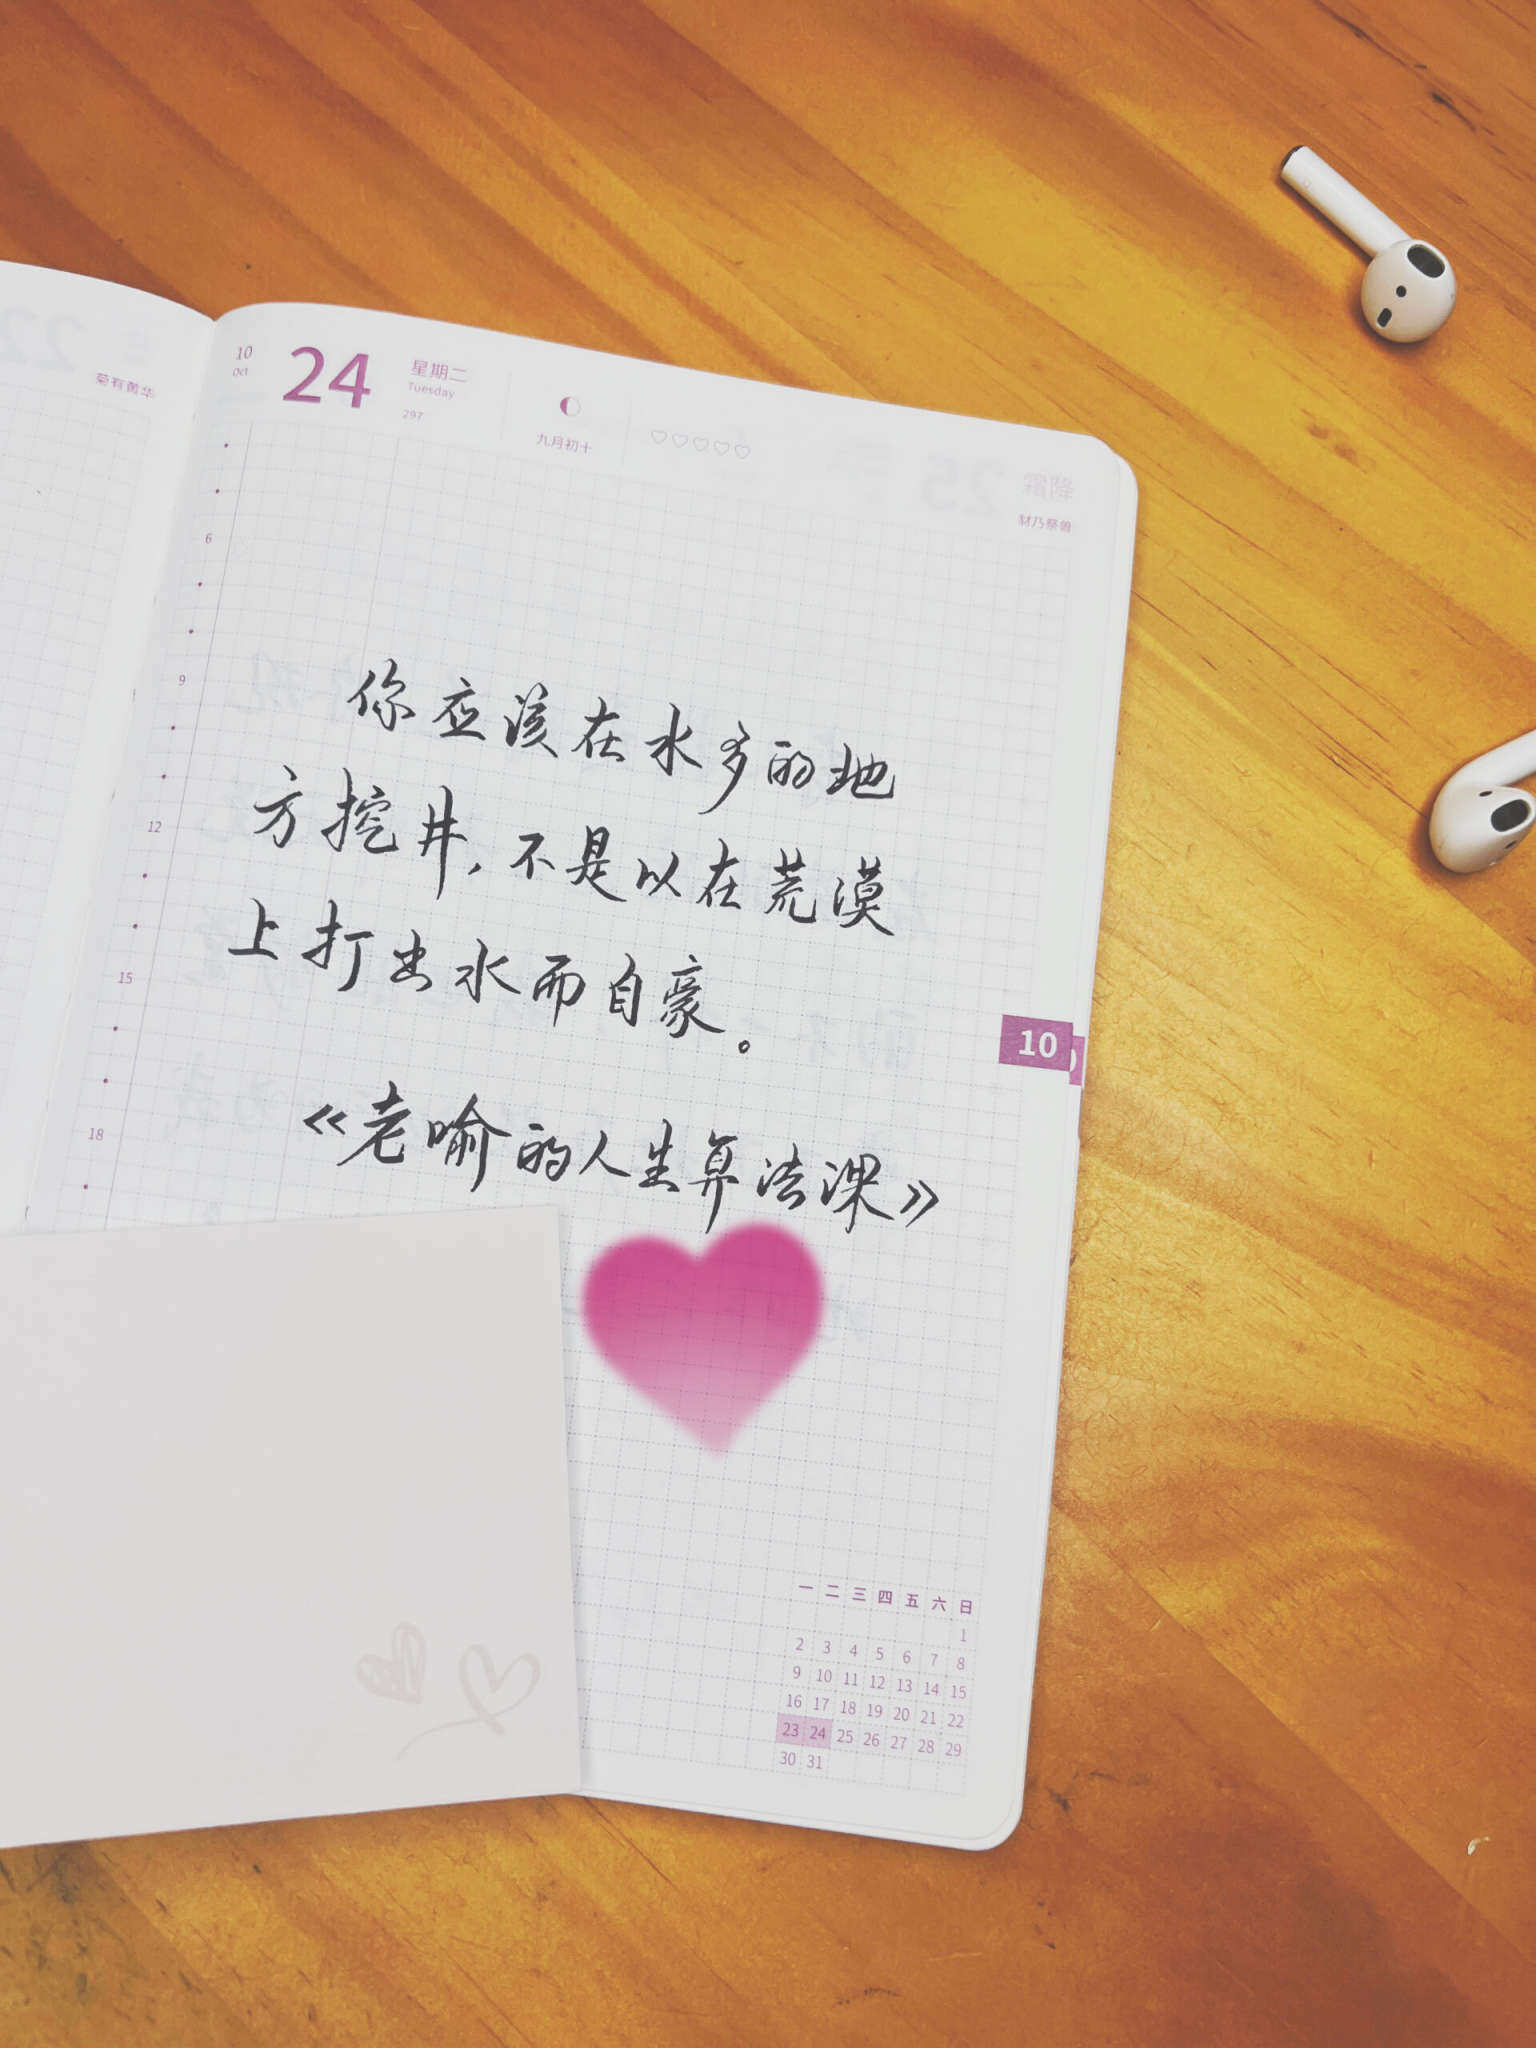 22 三
菊有黄华
10
Oct
24
星期二
Tuesday
297
九月初十
霜降
豺乃祭兽
6
9
12
15
18
你应该在水多的地
方挖井，不是以在荒漠
上打出水而自豪。
《老喻的人生算法课》
10
一 二 三 四 五 六 日
1
2 3 4 5 6 7 8
9 10 11 12 13 14 15
16 17 18 19 20 21 22
23 24 25 26 27 28 29
30 31